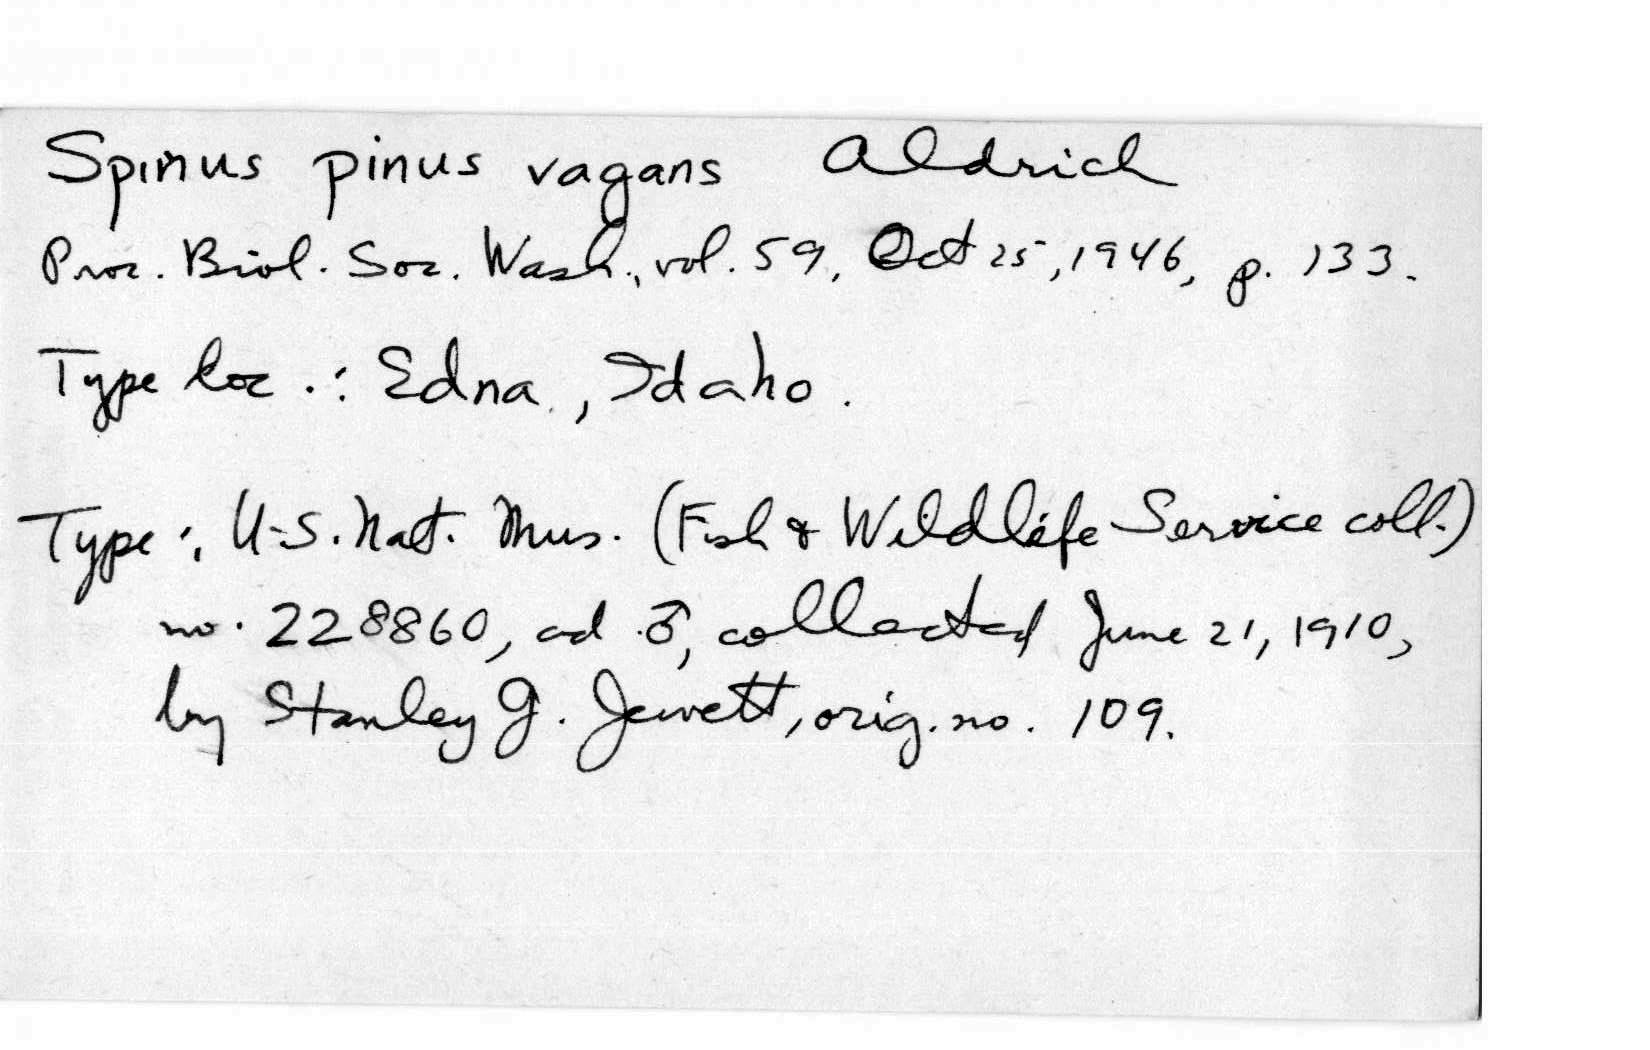 Spinus pinus vagans Aldrich
Proc. Biol. Soc. Wash., vol. 59, Oct 25, 1946, p. 133.
Type loc.: Edna, Idaho.
Type: U.S. Nat. Mus. (Fish & Wildlife Service coll.)
no. 228860, ad. ♂, collected June 21, 1910,
by Stanley G. Jewett, orig. no. 109.